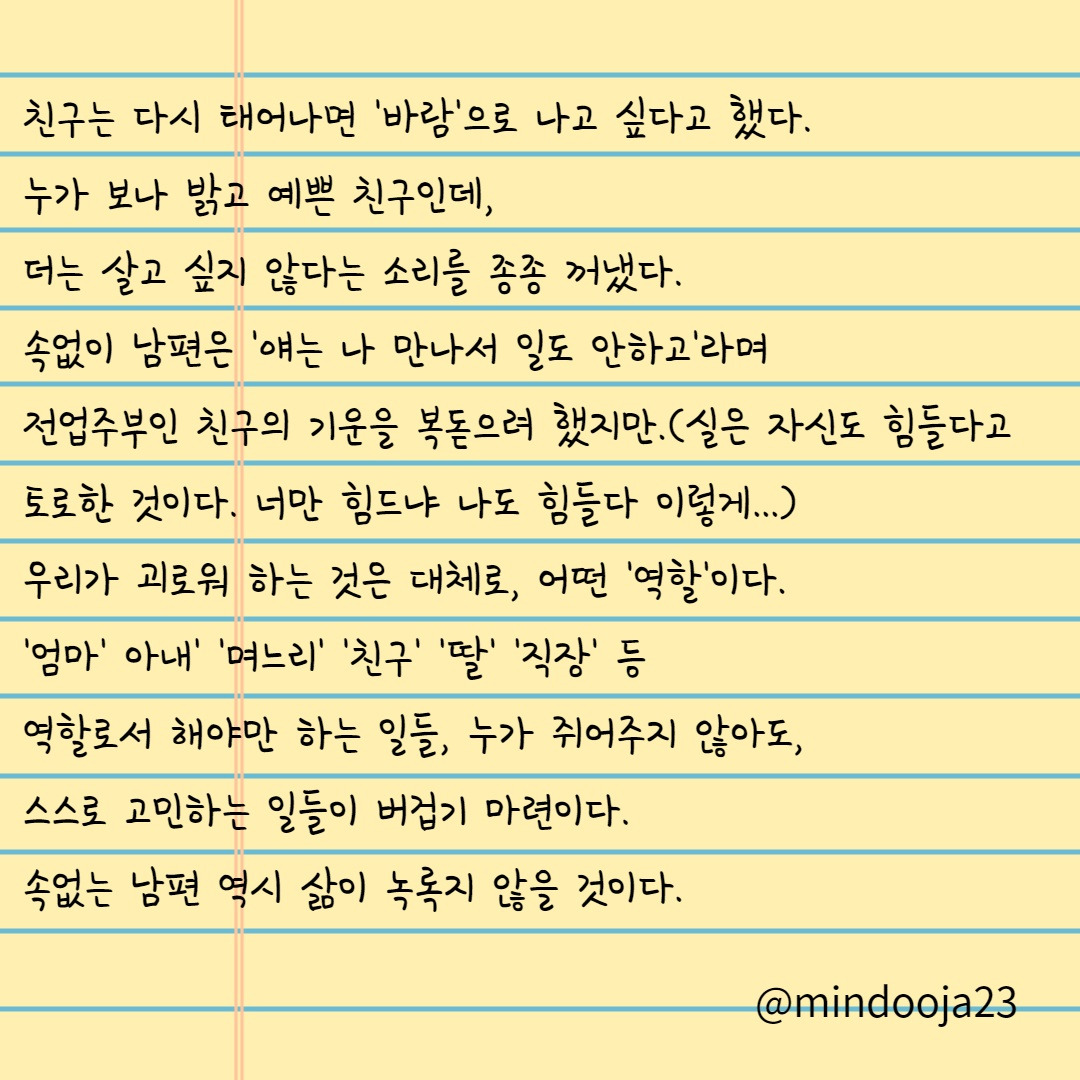 친구는 다시 태어나면 '바람'으로 나고 싶다고 했다.
누가 보나 밝고 예쁜 친구인데,
더는 살고 싶지 않다는 소리를 종종 꺼냈다.
속없이 남편은 '얘는 나 만나서 일도 안하고'라며
전업주부인 친구의 기운을 복돋으려 했지만.(실은 자신도 힘들다고
토로한 것이다. 너만 힘드냐 나도 힘들다 이렇게...)
우리가 괴로워 하는 것은 대체로, 어떤 '역할'이다.
'엄마' 아내' '며느리' '친구' '딸' '직장' 등
역할로서 해야만 하는 일들, 누가 쥐어주지 않아도,
스스로 고민하는 일들이 버겁기 마련이다.
속없는 남편 역시 삶이 녹록지 않을 것이다.
@mindooja23